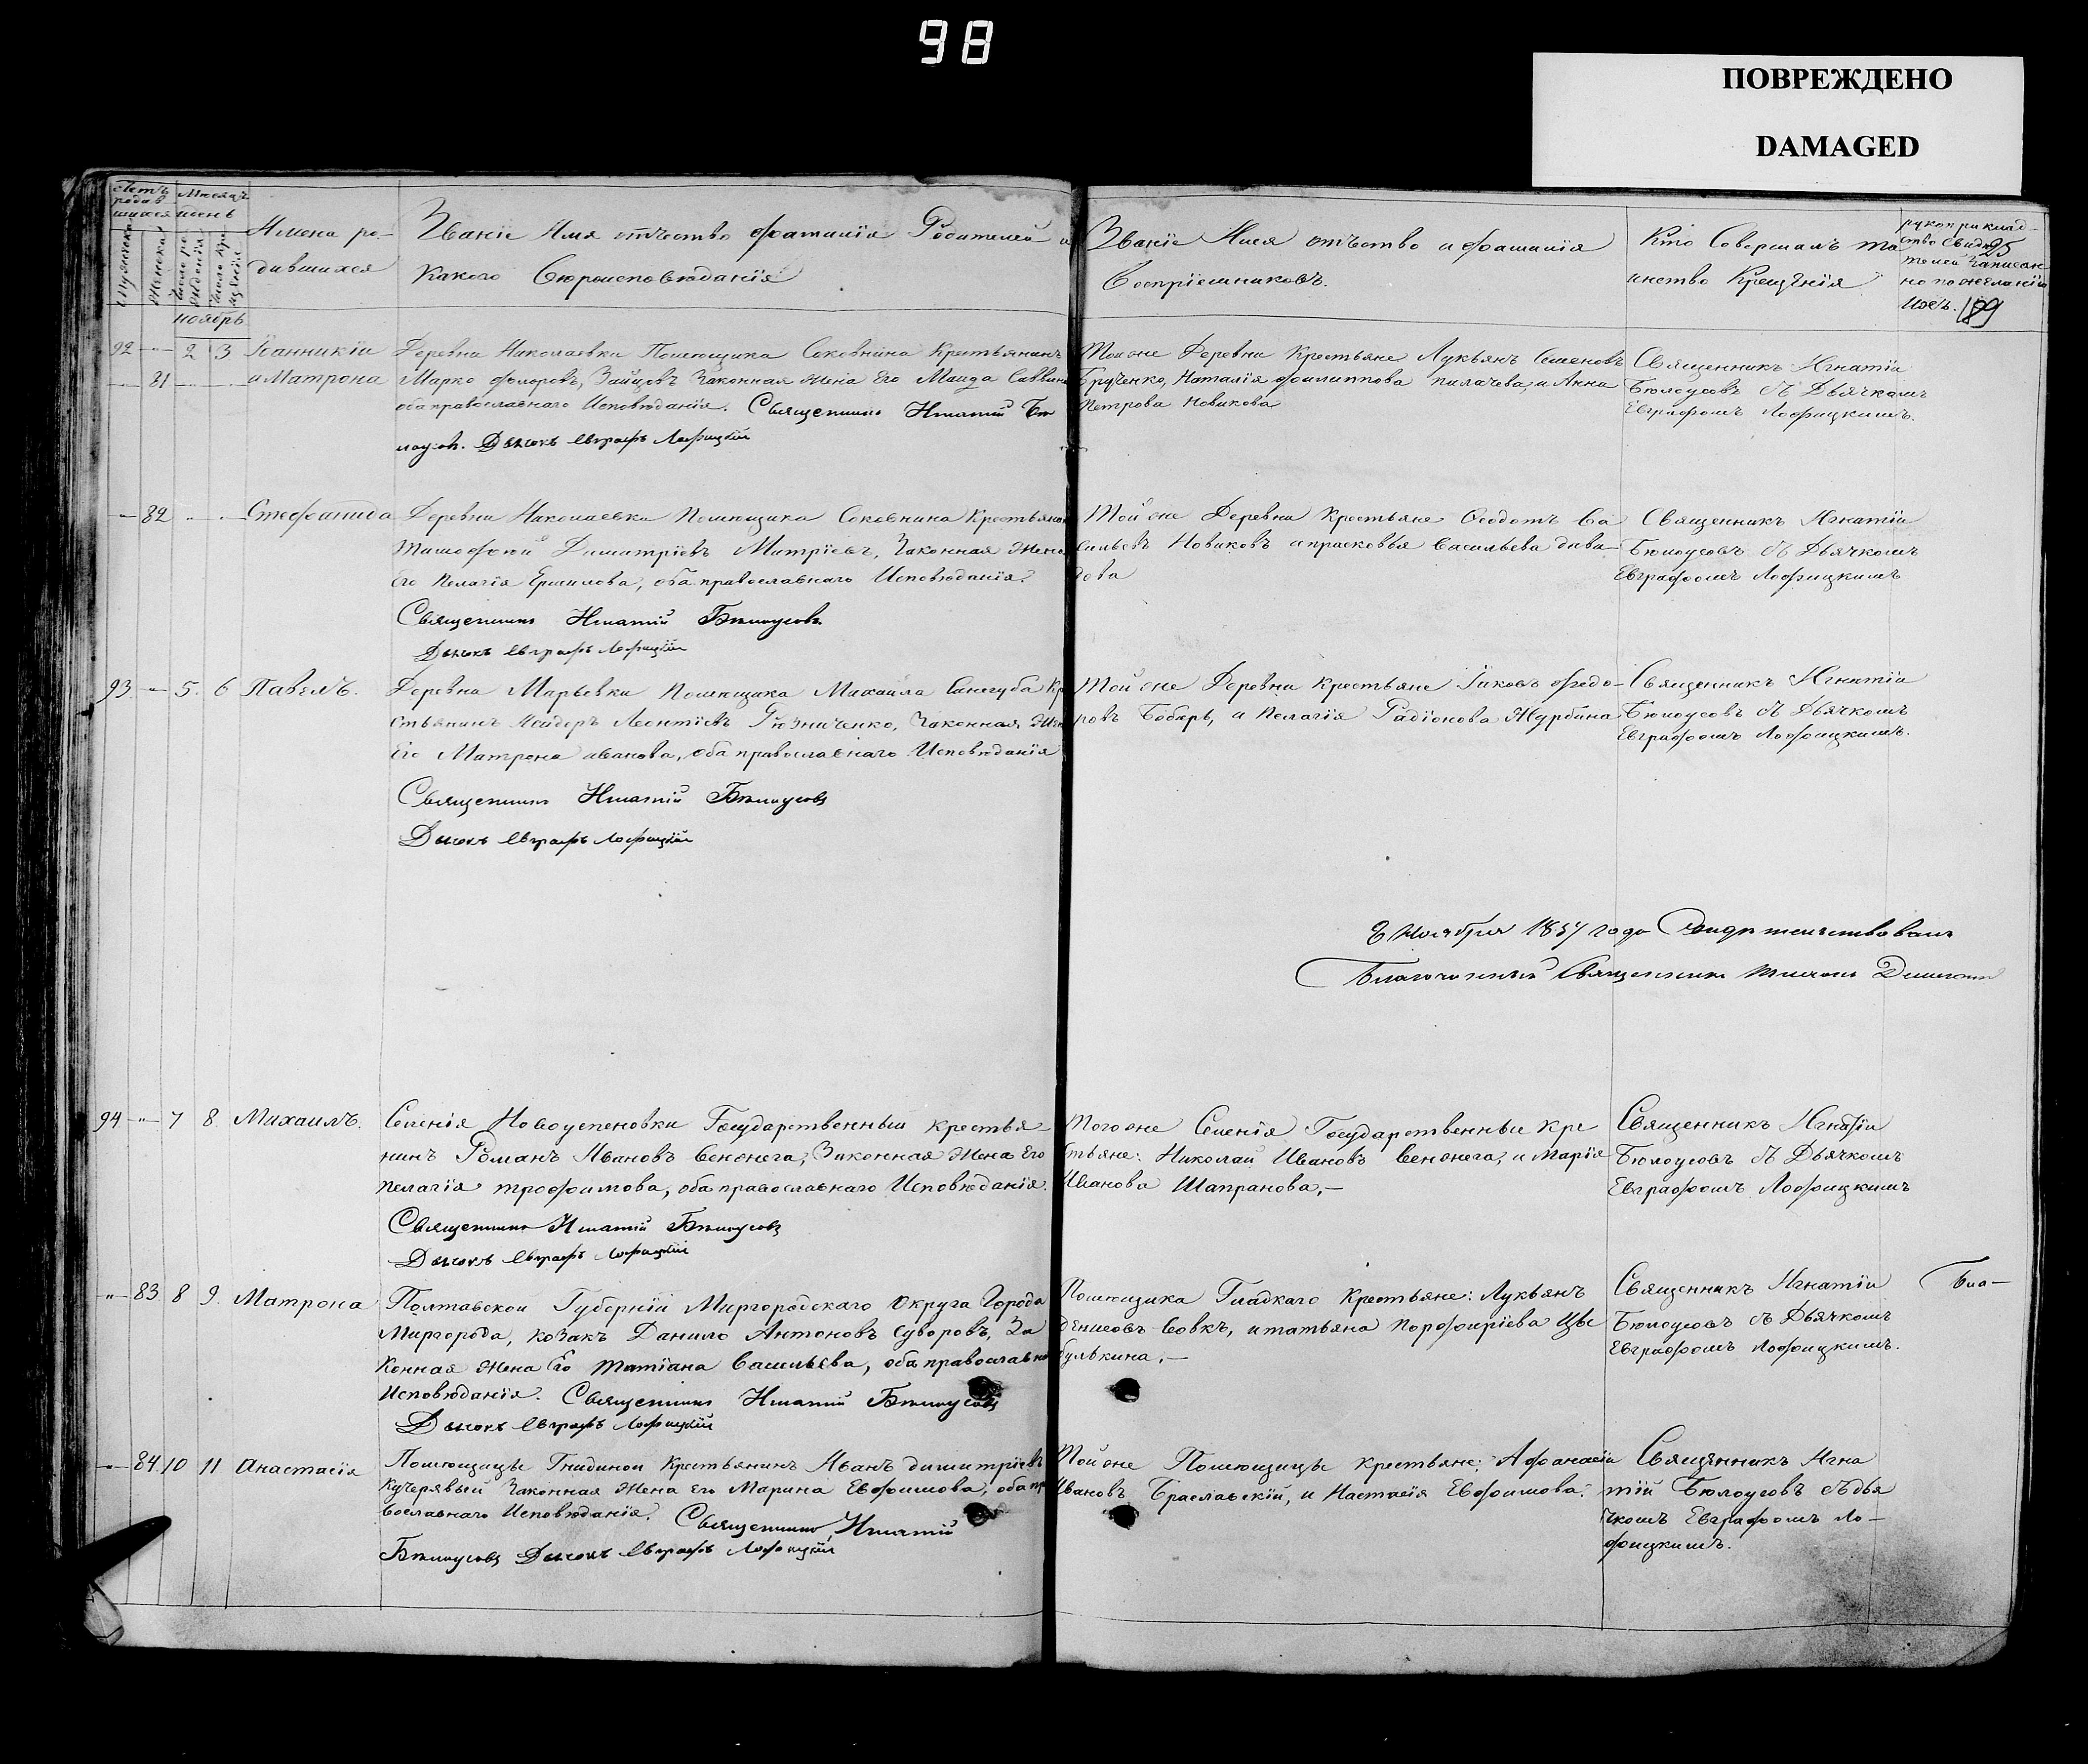 98
ПОВРЕЖДЕНО
DAMAGED
Счетъ родив шихся
Мѣсяцъ и день
Мужеска
Женска
Число ро жденія
Число кре щенія
ноябрь
Имена ро-
дившихся
Званіе Имя отчество фамилія Родителей и
какого Вѣроисповѣданія
Званіе Имя отчество и фамилія
Воспріемниковъ.
Кто Совершалъ та
инство Крещенія
рукоприклад-
ство Свидѣ
телей записан
но по желанію
25
189
92 — 2 3 Іоанникій
— 81 — и Матрона
Деревни Николаевки Помѣщика Соковнина Крестьянинъ
Марко Федоровъ, Зайцовъ Законная Жена Его Саввина
оба православнаго Исповѣданія. Священникъ Игнатій Бѣ
лоусовъ. Дьячокъ Евграфъ Лофицкій
Той же Деревни Крестьяне Лукьянъ Семеновъ
Брученко, Наталія Филиппова Пилачева, и Анна
Петрова Новикова
Священникъ Игнатій
Бѣлоусовъ съ Дьячкомъ
Евграфомъ Лофицкимъ.
— 82 Стефанида
Деревни Николаевки Помѣщика Соковнина Крестьянинъ
Тимофей Димитріевъ Митріевъ, Законная Жена
Его Пелагія Ермилова, оба православнаго Исповѣданія.
Священникъ Игнатій Бѣлоусовъ
Дьячокъ Евграфъ Лофицкій
Той же Деревни Крестьяне Феодотъ Ва
сильевъ Новиковъ и Прасковья Васильева Дави-
дова
Священникъ Игнатій
Бѣлоусовъ съ Дьячкомъ
Евграфомъ Лофицкимъ
93 — 5. 6 Павелъ.
Деревни Марьевки Помѣщика Михаила Синегуба Кр
естьянинъ Леонтіевъ Рѣзниченко, Законная Жена
Его Матрона Иванова, оба православнаго Исповѣданія
Священникъ Игнатій Бѣлоусовъ
Дьячокъ Евграфъ Лофицкій
Той же Деревни Крестьяне Іаковъ Федо-
ровъ Бобарь, и Пелагія Радіонова Журбина
Священникъ Игнатій
Бѣлоусовъ съ Дьячкомъ
Евграфомъ Лофицкимъ.
8 Ноября 1857 года Свидѣтельствовалъ
Благочинный Священникъ
94 — 7 8 Михаилъ.
Селенія Новоуспеновки Государственный крестья-
нинъ Романъ Ивановъ Венжега, Законная Жена Его
Пелагія Трофимова, оба православнаго Исповѣданія.
Священникъ Игнатій Бѣлоусовъ
Дьячокъ Евграфъ Лофицкій
Того же Селенія Государственные Кре
стьяне: Николай Ивановъ Венжега, и Марія
Иванова Шапранова,—
Священникъ Игнатій
Бѣлоусовъ съ Дьячкомъ
Евграфомъ Лофицкимъ
— 83 8 9. Матрона
Полтавской Губерніи Миргородскаго Округа Города
Миргорода, козакъ Данило Антоновъ Суворовъ, За
конная Жена Его Татіана Васильева, оба православна
Исповѣданія. Священникъ Игнатій Бѣлоусовъ
Дьячокъ Евграфъ Лофицкій
Помѣщика Гладкаго Крестьяне: Лукьянъ
Денисовъ Вовкъ, и Татьяна Порфиріева Цы
булькина,—
Священникъ Игнатій
Бѣлоусовъ съ Дьячкомъ
Евграфомъ Лофицкимъ.
Бла—
— 84 10 11 Анастасія
Помѣщицы Гнидиной Крестьянинъ Иванъ Димитріевъ
Кучерявый Законная Жена Его Марина Евфимова, оба пр
вославнаго Исповѣданія. Священникъ Игнатій
Бѣлоусовъ Дьячокъ Евграфъ Лофицкій
Той же Помѣщицы Крестьяне: Афанасій
Ивановъ Браславскій, и Настасія Евфимова.
Священникъ Игна
тій Бѣлоусовъ съ Дья
чкомъ Евграфомъ Ло-
фицкимъ.